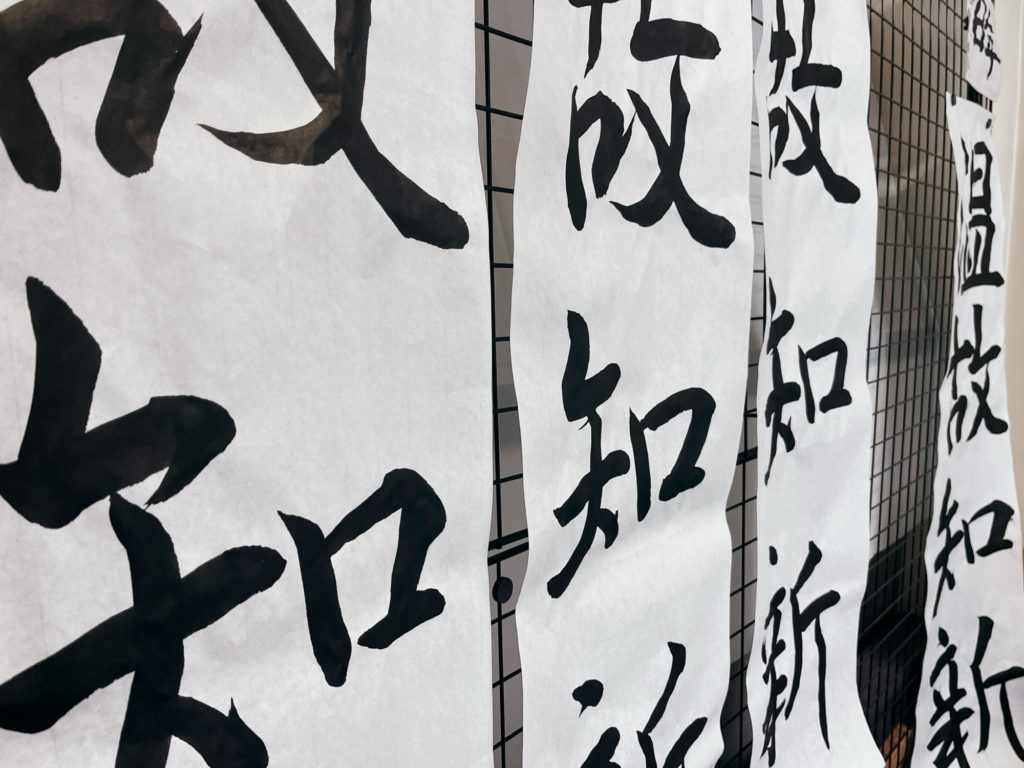 温故知新
故知新
故知新
故知